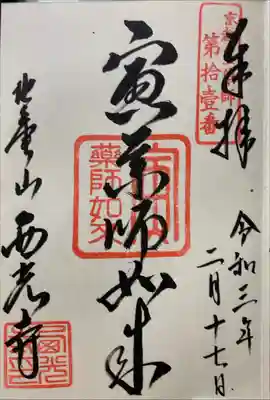 奉拝
第拾壹番
寅薬師如来
藥師如来
令和三年
二月十七日
山西光寺